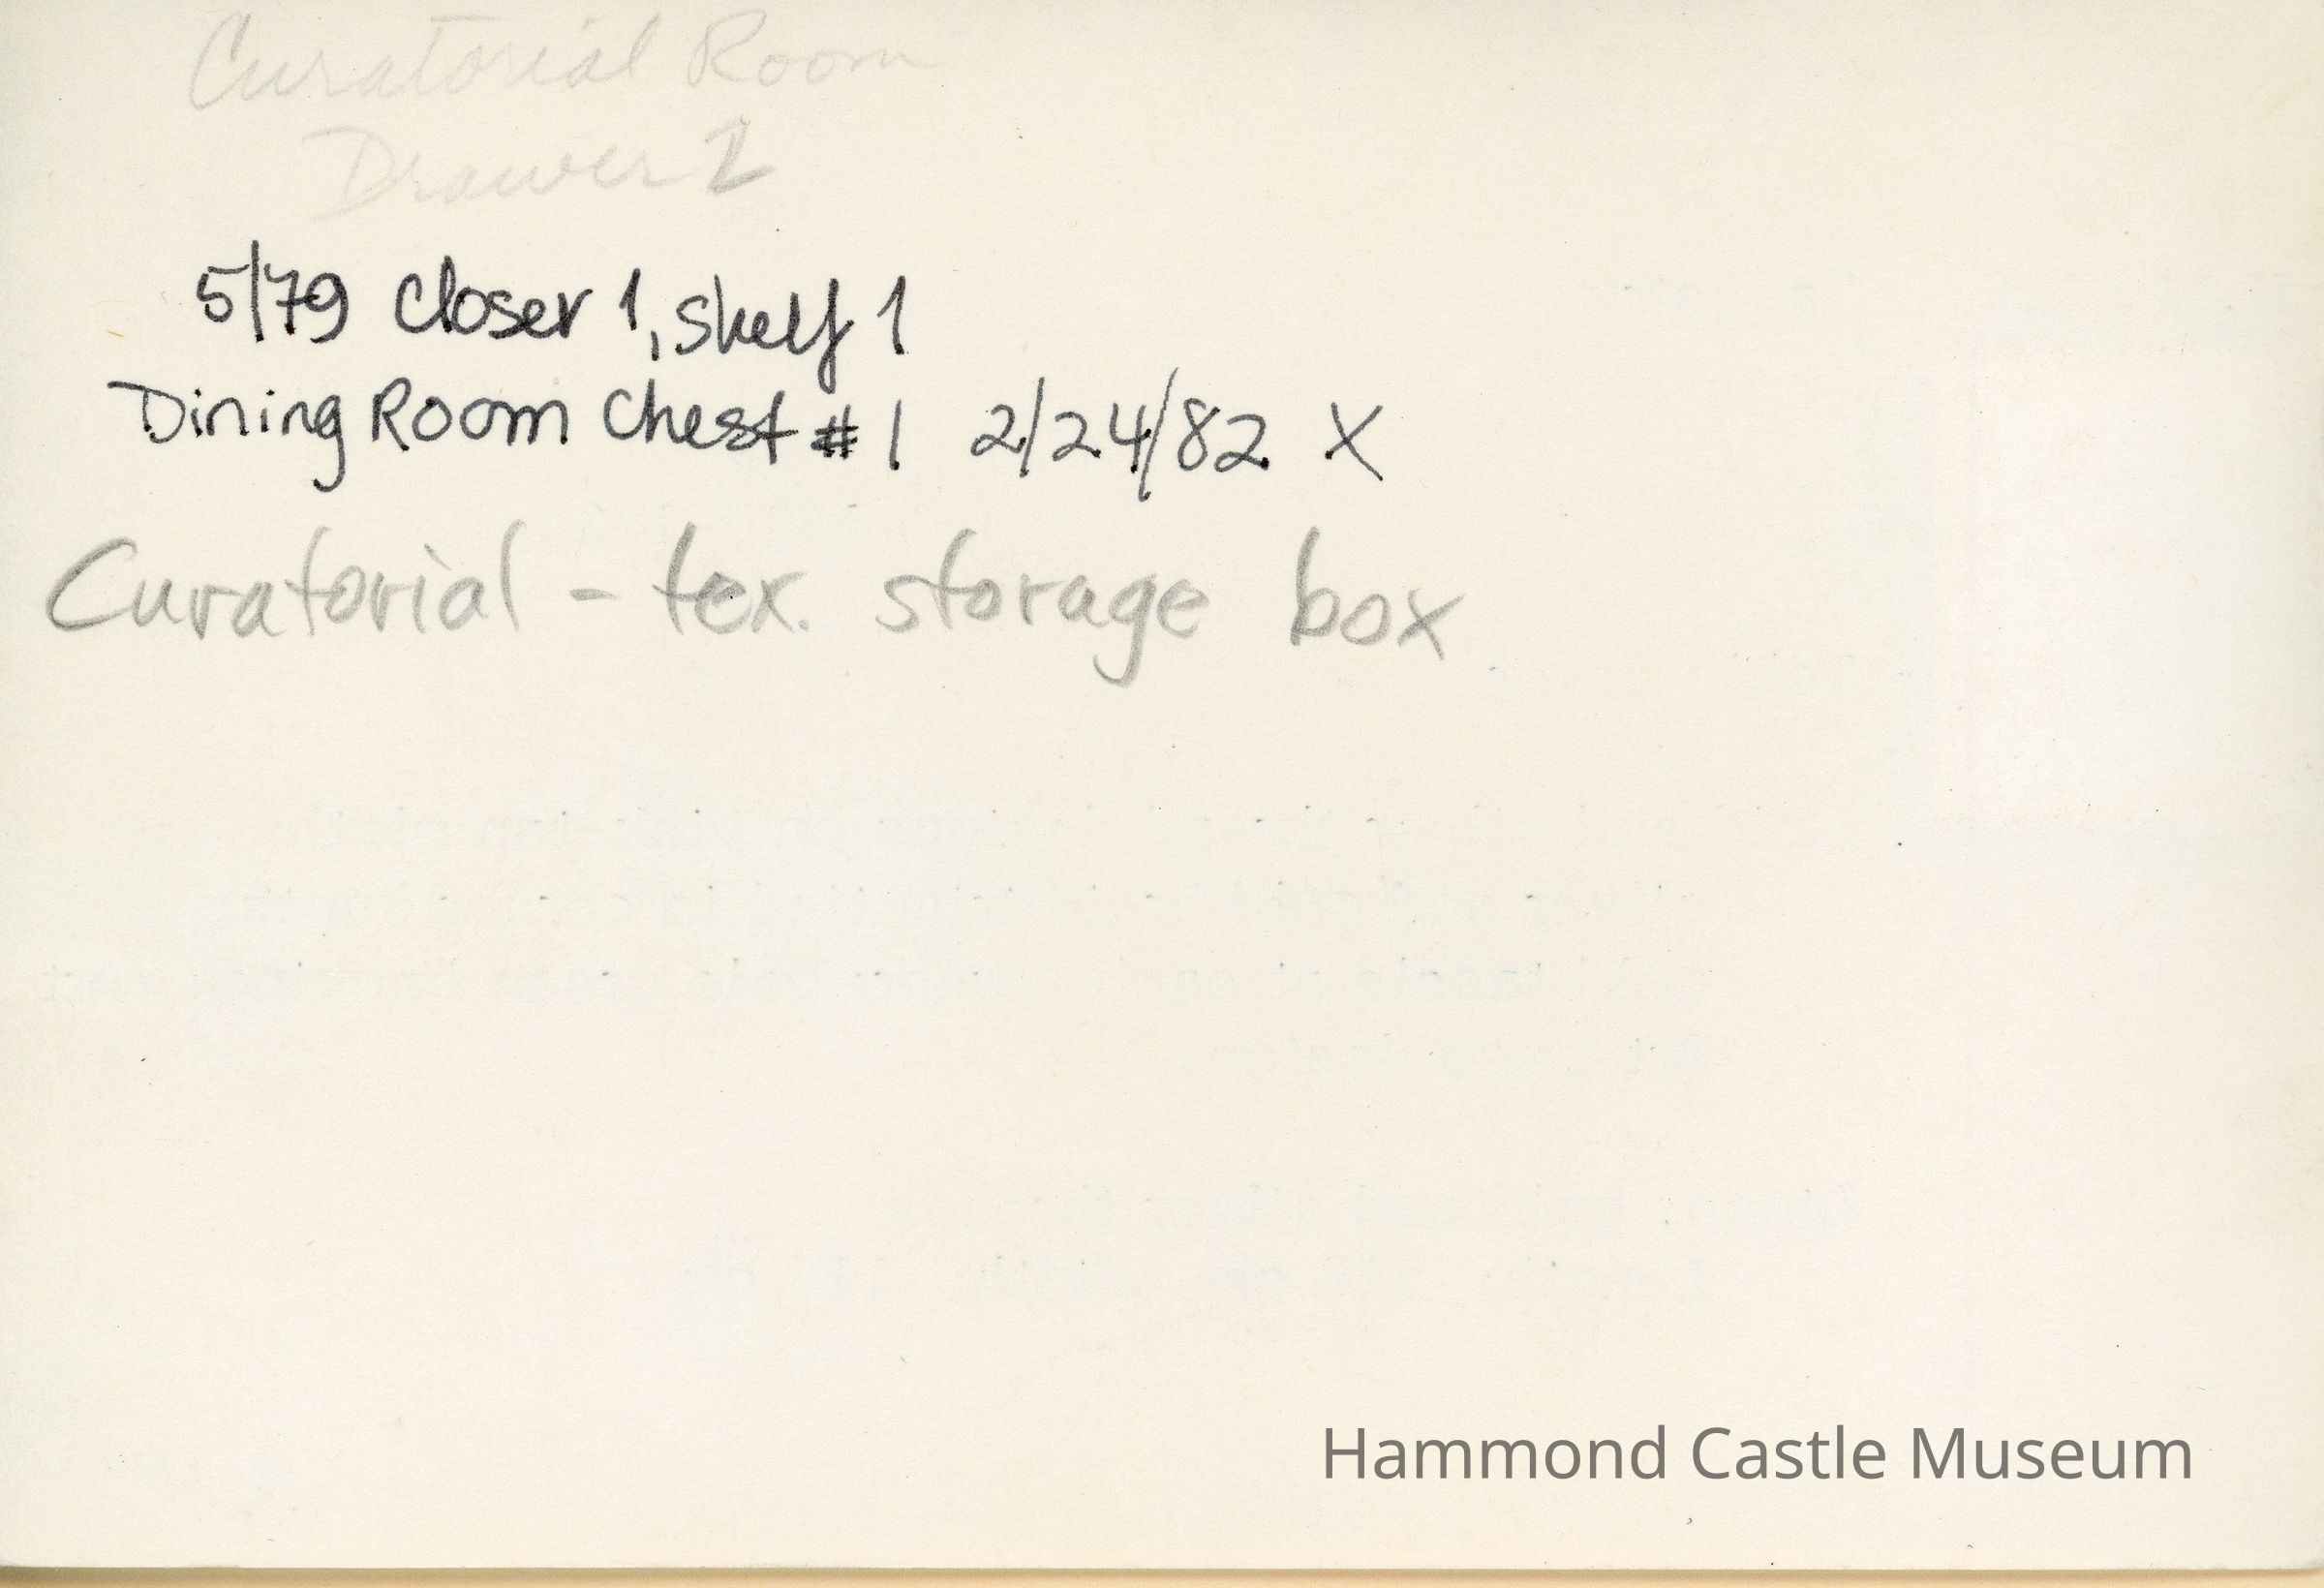 Curatorial Room
Drawer 2
5/79 Closer 1, Shelf 1
Dining Room Chest #1 2/24/82 X
Curatorial - tex. storage box
Hammond Castle Museum